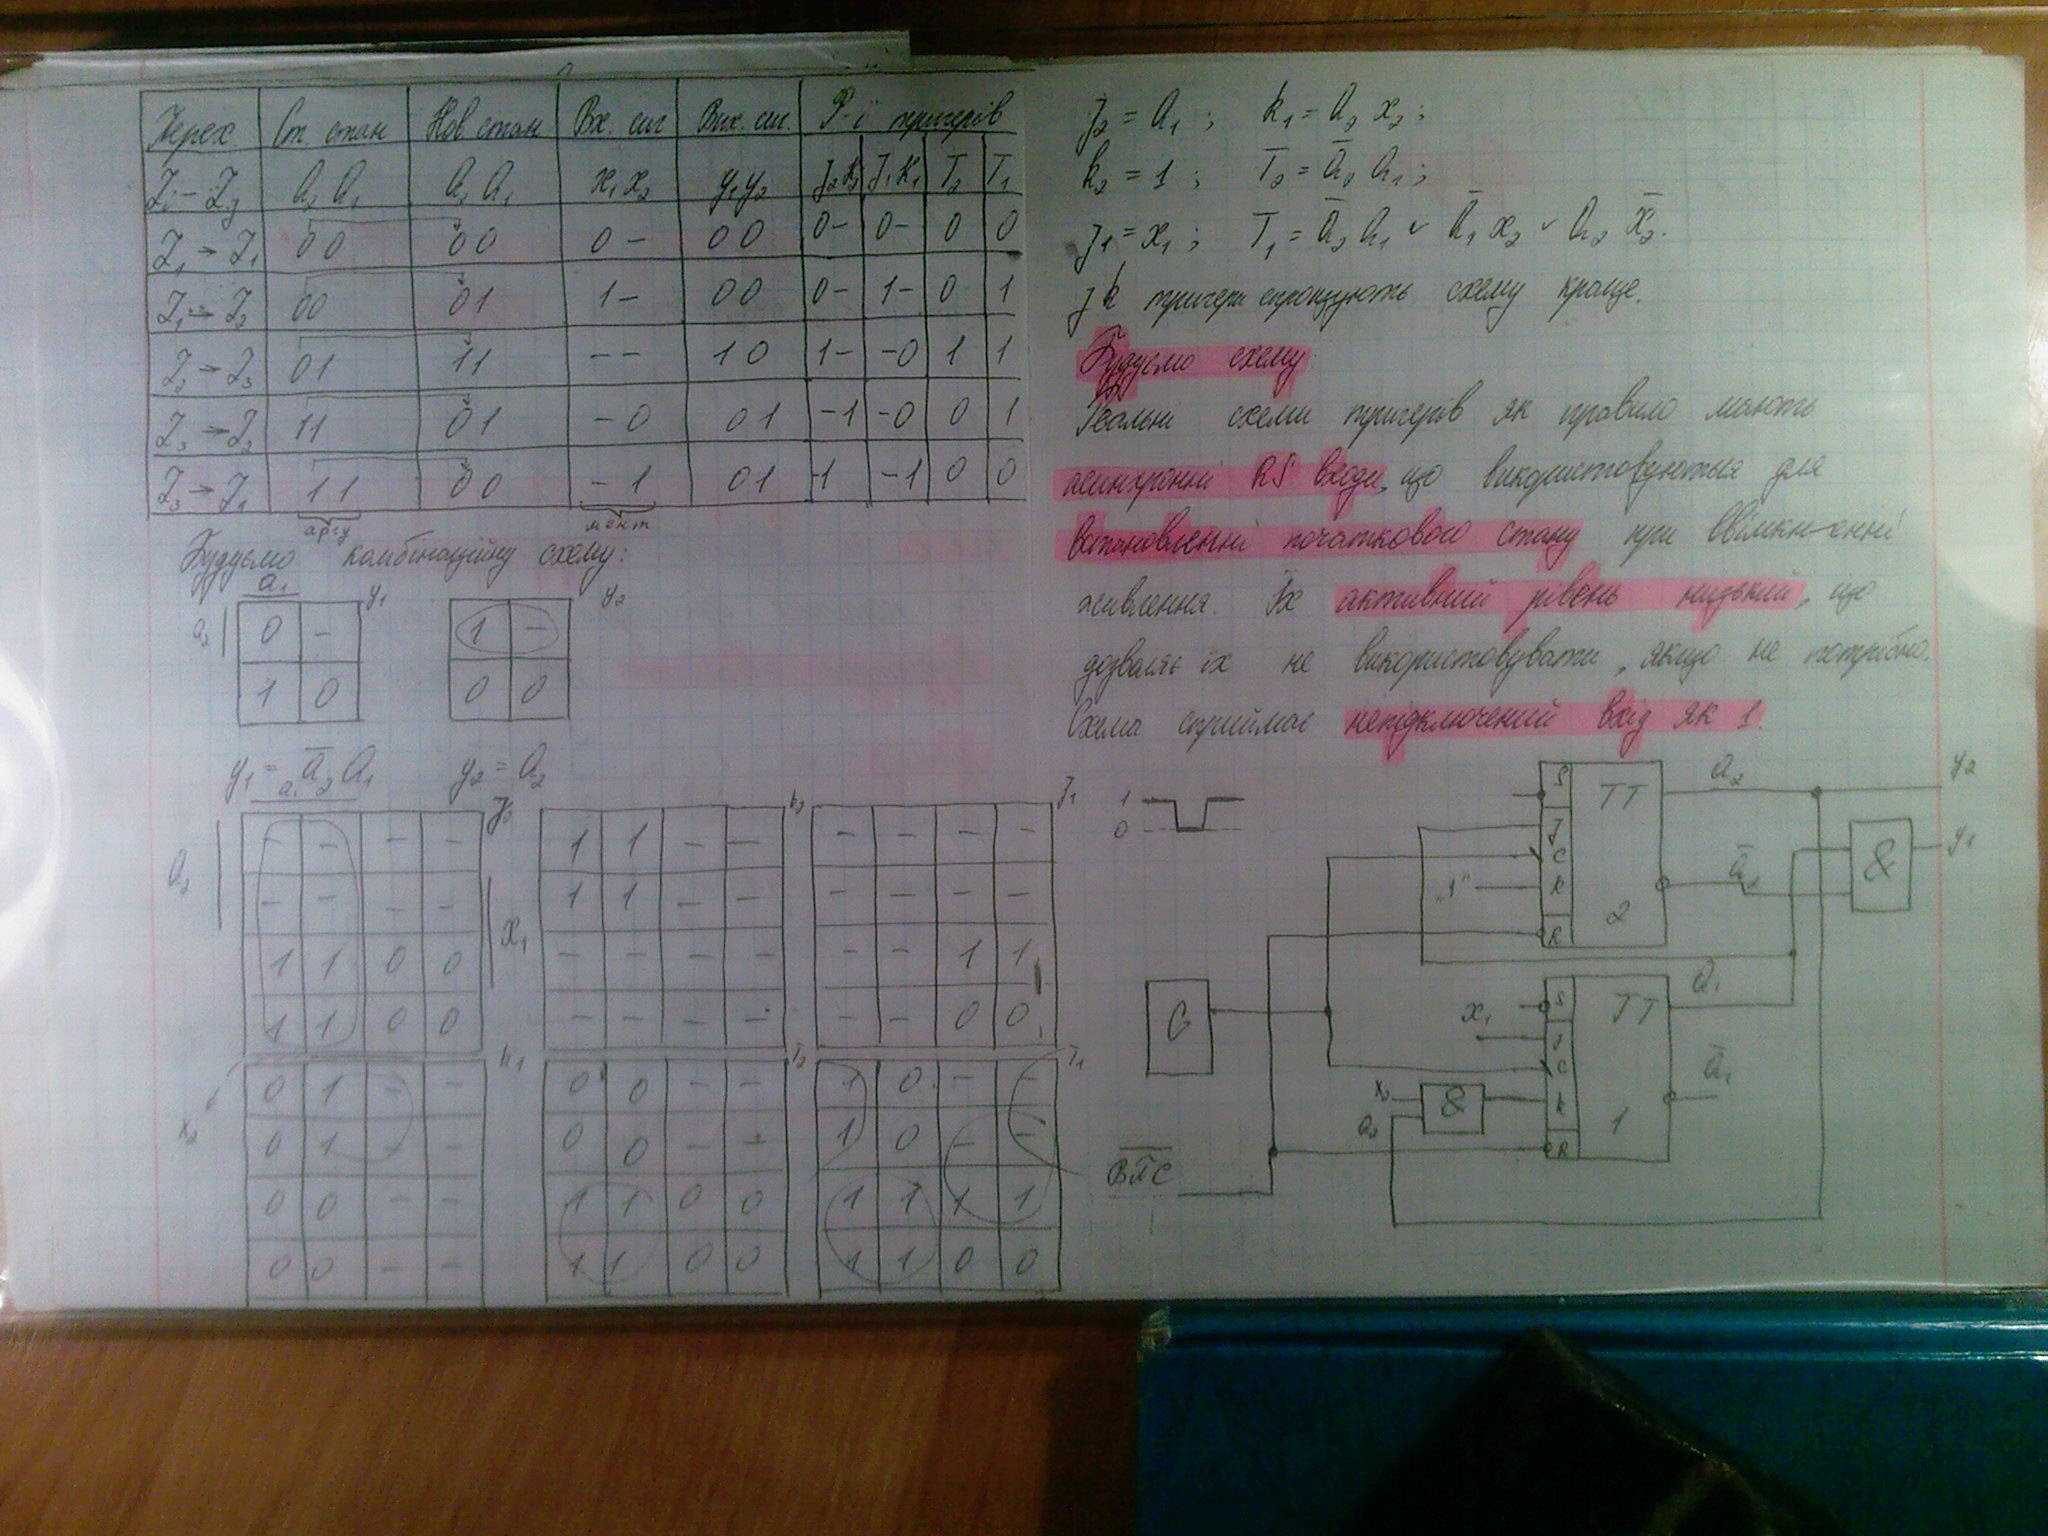 Перех. Ст. стан Нов стан Вх. сиг Вих. сиг. Ф-ї тригерів
Zi – Zj a₂ a₁ a₂ a₁ x₁ x₂ y₁ y₂ J₂ K₂ J₁ K₁ T₂ T₁
Z₁ → Z₁ 00 00 0 – 00 0– 0– 0 0
Z₁ → Z₂ 00 01 1 – 00 0– 1– 0 1
Z₂ → Z₃ 01 11 – – 10 1– –0 1 1
Z₃ → Z₂ 11 01 – 0 01 –1 –0 0 1
Z₃ → Z₁ 11 00 – 1 01 –1 –1 0 0
аргу мент
Будуємо комбінаційну схему:
a₁ y₁ y₂
a₂ 0 – 1 –
1 0 0 0
y₁ = a̅₂ a₁ y₂ = a₂
a₁ J₂ k₂ J₁
a₂ – – – – 1 1 – – – – – –
– – – – 1 1 – – – – – –
x₁
1 1 0 0 – – – – – – 1 1
1 1 0 0 – – – – – – 0 0
k₁ T₂ T₁
0 1 – – 0 0 – – 1 0 – –
x₂ 0 1 – – 0 0 – – 1 0 – –
0 0 – – 1 1 0 0 1 1 1 1
0 0 – – 1 1 0 0 1 1 0 0
J₂ = a₁ ; k₁ = a₂ x₂ ;
k₂ = 1 ; T₂ = a̅₂ a₁ ;
J₁ = x₁ ; T₁ = a̅₂ a₁ ∨ a̅₁ x₂ ∨ a₂ x̅₂.
Jk тригери спрощують схему краще.
Будуємо схему
Реальні схеми тригерів як правило мають
асинхронні RS входи, що використовуються для
встановленні початкового стану при ввімкненні
живлення. Їх активний рівень низький, що
дозволяє їх не використовувати, якщо не потрібно.
Схема сприймає непідключений вхід як 1.
1
0
S TT a₂ y₂
J
C & y₁
"1" k a̅₂
2
R
G
x₁ S TT a₁
J
C a̅₁
x₂ & k
a₂ 1
R
В̅П̅С̅